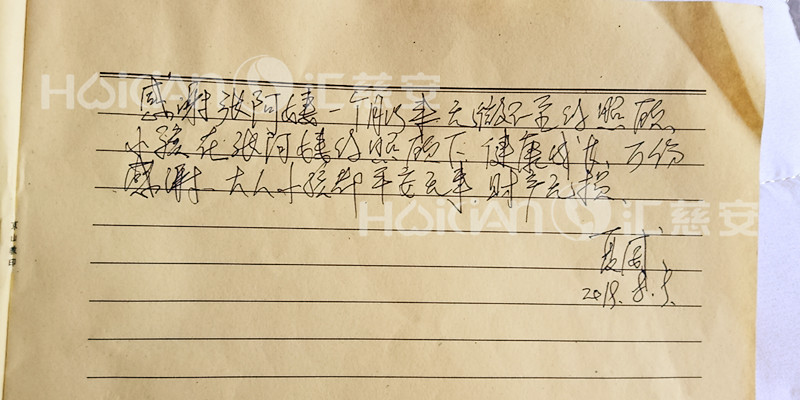 HOiCiAN 汇慈安
感谢张阿姨一个月以来无微不至的照顾,
小孩在张阿姨的照顾下,健康成长,万份
感谢,大人小孩都平安无事,财产无损、
HOiCiAN 汇慈安
夏雨
2018.8.5.